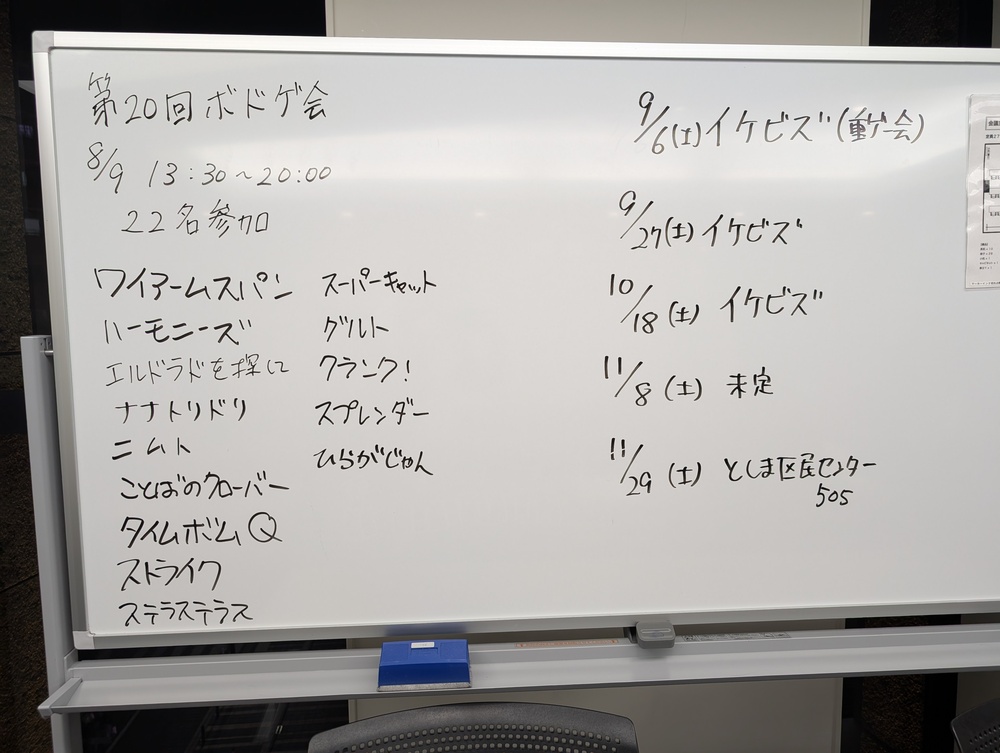 第20回ボドゲ会
8/9 13:30~20:00
22名参加
ワイアームスパン
ハーモニーズ
エルドラドを探して
ナナトリドリ
ニムト
ことばのクローバー
タイムボムQ
ストライク
ステラステラス
スーパーキャット
グルルト
クランク!
スプレンダー
ひらがじゃん
9/6(土)イケビズ(重ゲー会)
9/27(土)イケビズ
10/18(土) イケビズ
11/8(土) 未定
11/29(土) としま区民センター
505